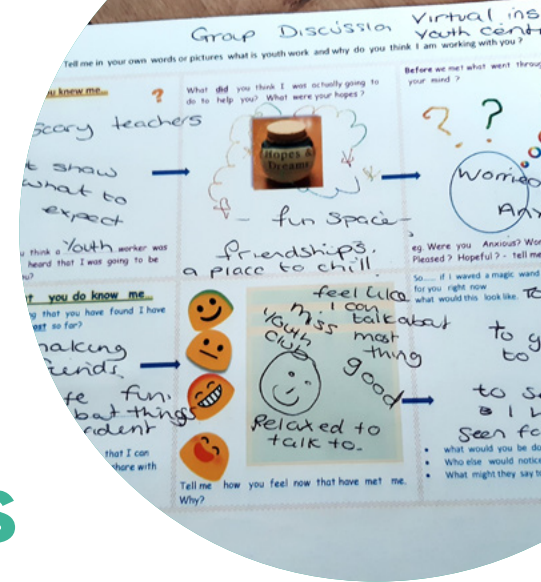 Group Discussion Virtual ins
Youth cent
Tell me in your own words or pictures what is youth work and why do you think I am working with you ?
u knew me...
?
scary teachers
t shaw
what to
expect
u think a Youth worker was
heard that I was going to be
u?
What did you think I was actually going to
do to help you? What were your hopes ?
Hopes &
Dreams
- fun space -
friendships.
a place to chill.
Before we met what went throug
your mind ?
? ?
Worried
An
eg. Were you Anxious? Wor
Pleased ? Hopeful ? - tell me
t you do know me...
g that you have found I have
est so far?
making
friends.
fe fun.
bat things
fident
that I can
share with
feel like
I can
talk about
most
thing
miss
Youth
club
good
Relaxed to
talk to.
Tell me how you feel now that have met me.
Why?
So.... if I waved a magic wand
for you right now
what would this look like. To
to g
to
to s
I
seen fa
• what would you be do
• Who else would notice
• What might they say t
s